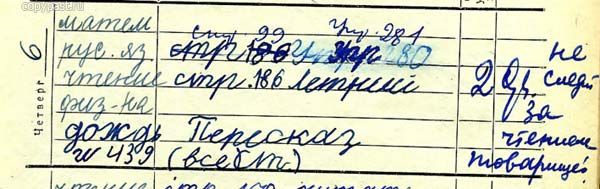 copypast.ru
Четверг 6
матем стр 22 Упр. 281
рус. яз. стр. 186 Упр 280
чтение стр. 186 Летний
физ-на
дождь Пересказ
№ 439 (всё бт.)
2
не
следит
за
чтением
товарищей!
чтение стр